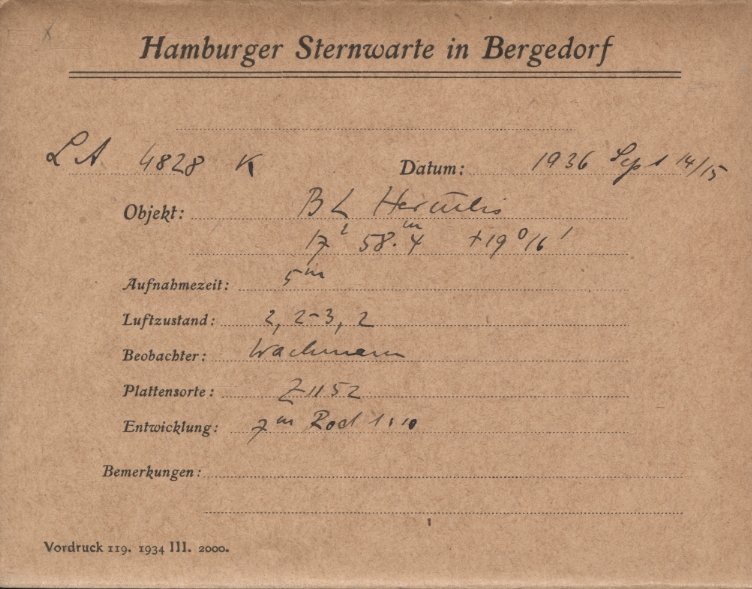 Hamburger Sternwarte in Bergedorf
LA 4828 K Datum: 1936 Sept 14/15
Objekt: BL Herculis
17h 58.m4 +19° 16'
Aufnahmezeit: 5m
Luftzustand: 2, 2-3, 2
Beobachter: Wachmann
Plattensorte: Z 1152
Entwicklung: 7m Rod 1:10
Bemerkungen:
Vordruck 119. 1934 III. 2000.